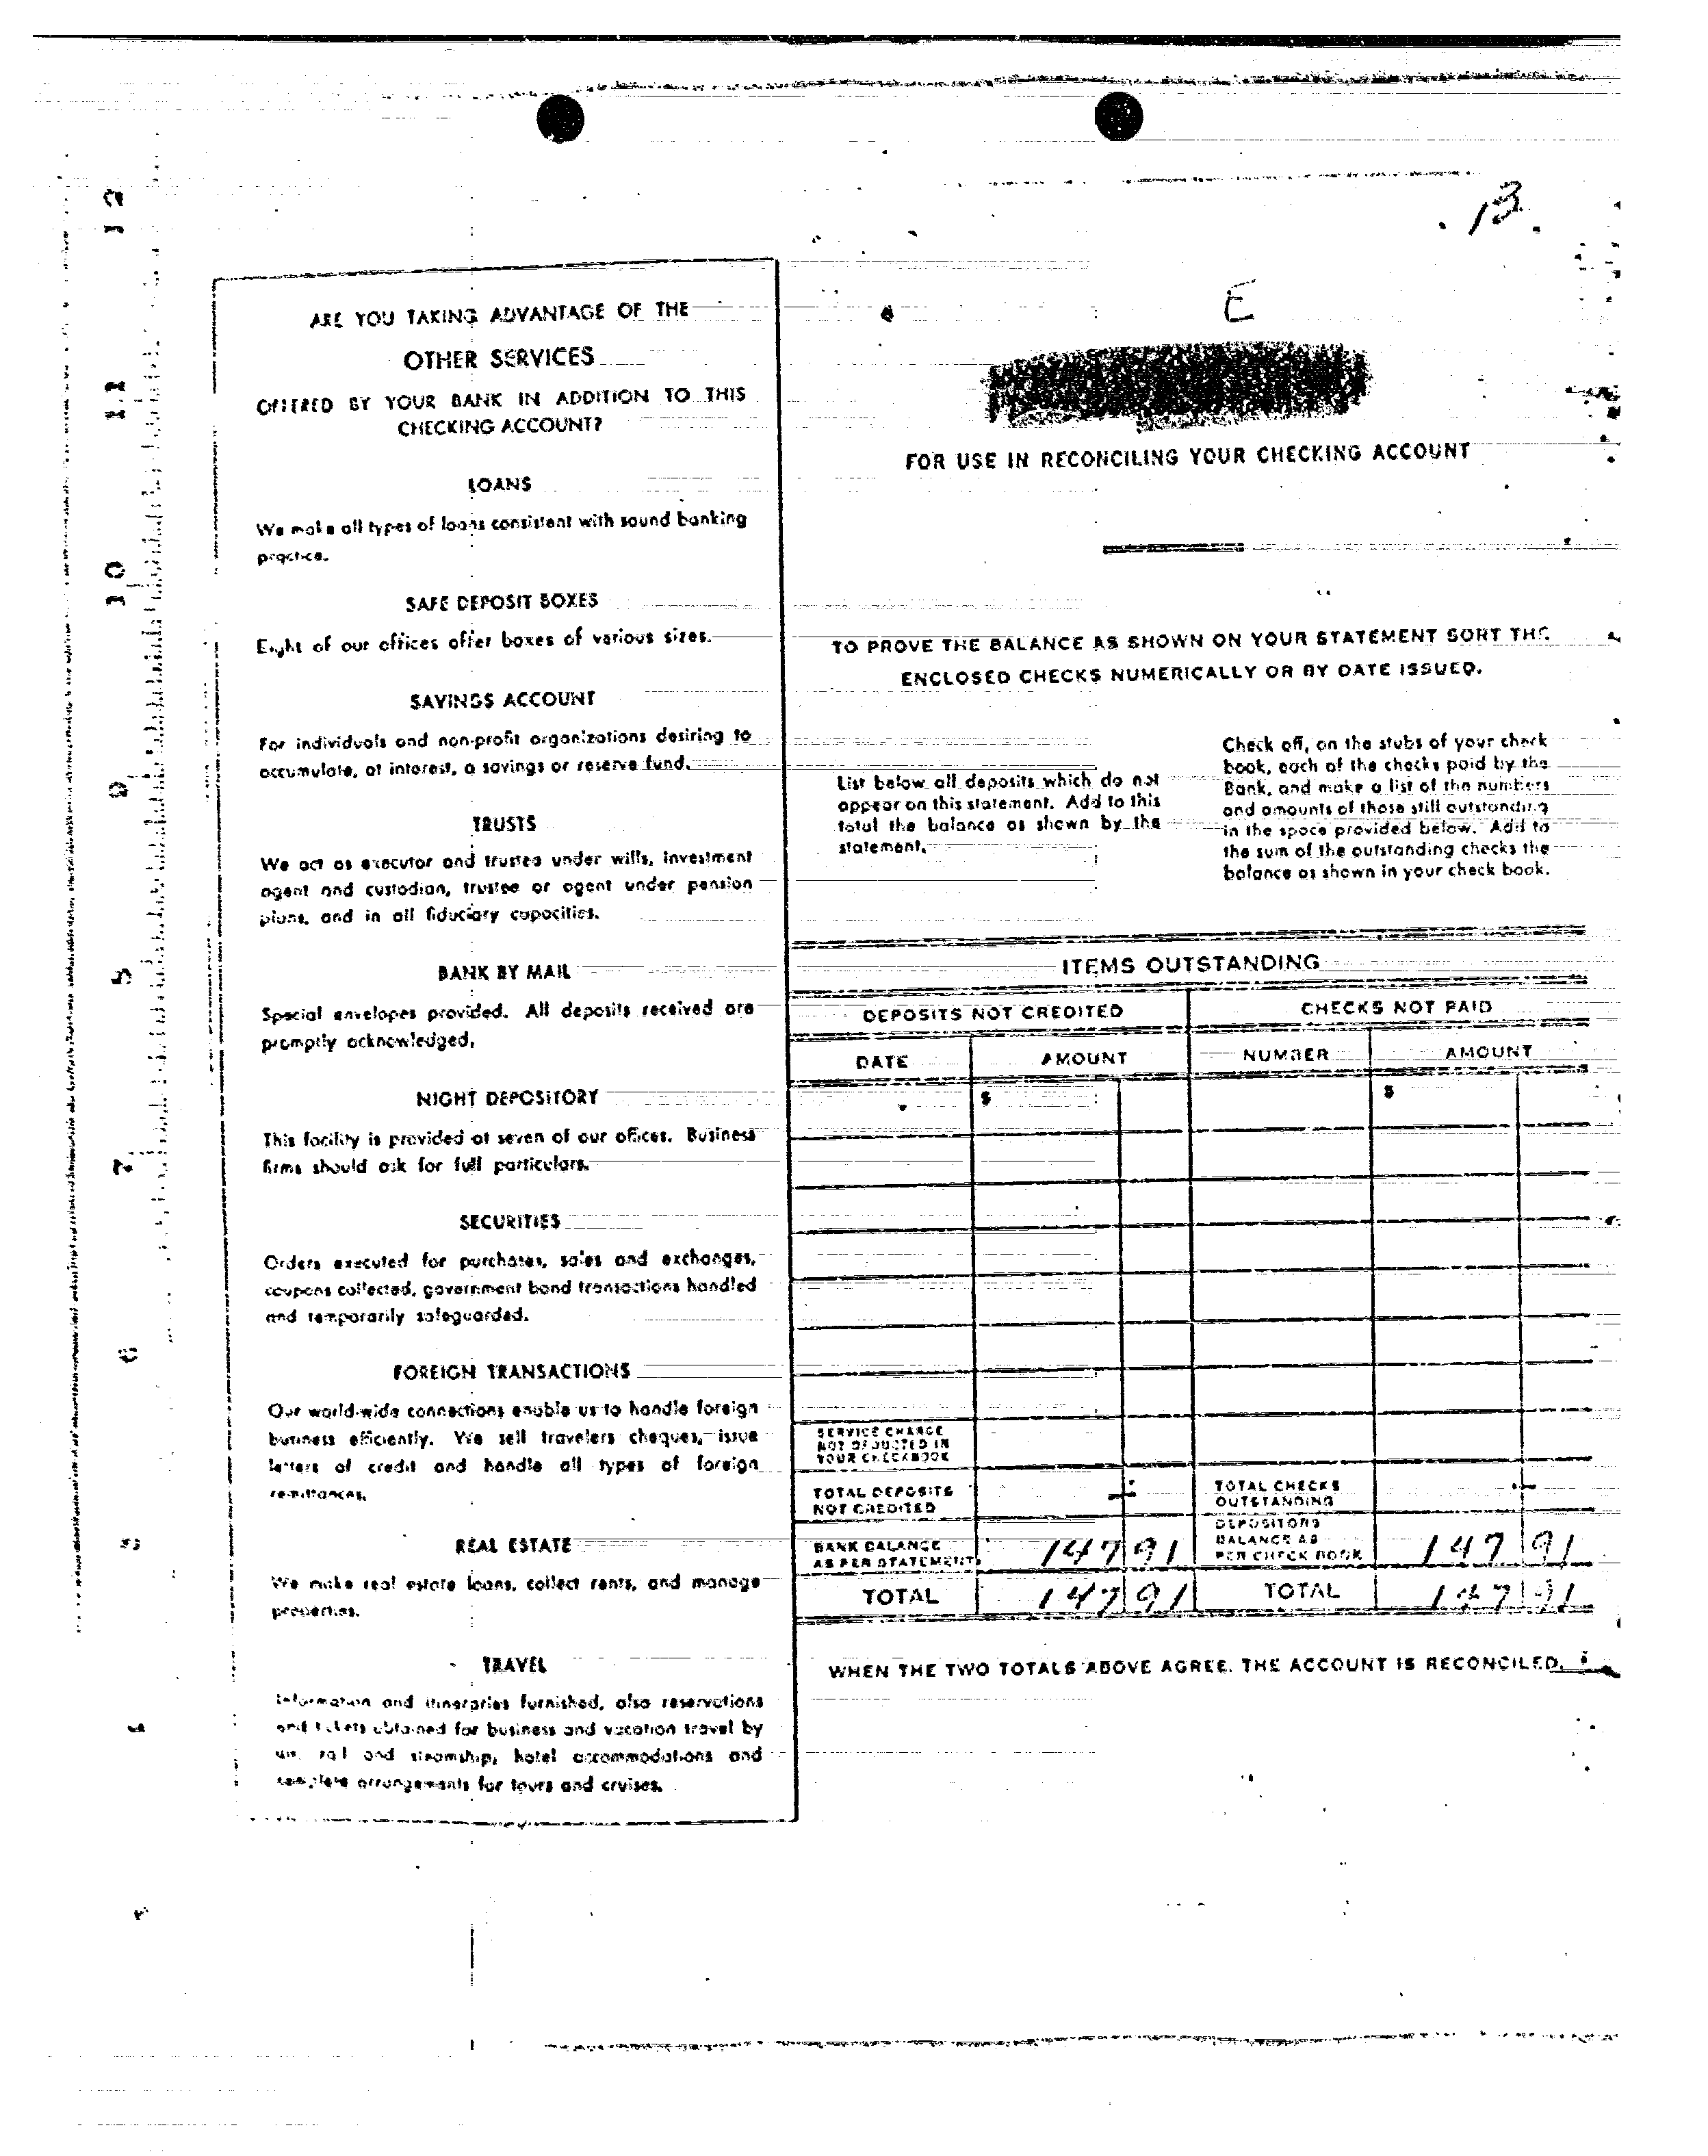 13
E
ARE YOU TAKING ADVANTAGE OF THE
OTHER SERVICES
OFFERED BY YOUR BANK IN ADDITION TO THIS
CHECKING ACCOUNT?
LOANS
We make all types of loans consistent with sound banking
practice.
SAFE DEPOSIT BOXES
Eight of our offices offer boxes of various sizes.
SAVINGS ACCOUNT
For individuals and non-profit organizations desiring to
accumulate, at interest, a savings or reserve fund.
TRUSTS
We act as executor and trustee under wills, investment
agent and custodian, trustee or agent under pension
plans, and in all fiduciary capacities.
BANK BY MAIL
Special envelopes provided. All deposits received are
promptly acknowledged.
NIGHT DEPOSITORY
This facility is provided at seven of our offices. Business
firms should ask for full particulars.
SECURITIES
Orders executed for purchases, sales and exchanges,
coupons collected, government bond transactions handled
and temporarily safeguarded.
FOREIGN TRANSACTIONS
Our world-wide connections enable us to handle foreign
business efficiently. We sell travelers cheques, issue
letters of credit and handle all types of foreign
remittances.
REAL ESTATE
We make real estate loans, collect rents, and manage
properties.
TRAVEL
Information and itineraries furnished, also reservations
and tickets obtained for business and vacation travel by
air, rail and steamship, hotel accommodations and
complete arrangements for tours and cruises.
FOR USE IN RECONCILING YOUR CHECKING ACCOUNT
TO PROVE THE BALANCE AS SHOWN ON YOUR STATEMENT SORT THE
ENCLOSED CHECKS NUMERICALLY OR BY DATE ISSUED.
List below all deposits which do not
appear on this statement. Add to this
total the balance as shown by the
statement.
Check off, on the stubs of your check
book, each of the checks paid by the
Bank, and make a list of the numbers
and amounts of those still outstanding
in the space provided below. Add to
the sum of the outstanding checks the
balance as shown in your check book.
ITEMS OUTSTANDING
DEPOSITS NOT CREDITED CHECKS NOT PAID
DATE AMOUNT NUMBER AMOUNT
$ $
SERVICE CHARGE
NOT DEDUCTED IN
YOUR CHECKBOOK
TOTAL DEPOSITS
NOT CREDITED
TOTAL CHECKS
OUTSTANDING
BANK BALANCE
AS PER STATEMENT 147 91
DEPOSITORS
BALANCE AS
PER CHECK BOOK 147 91
TOTAL 147 91 TOTAL 147 91
WHEN THE TWO TOTALS ABOVE AGREE, THE ACCOUNT IS RECONCILED.